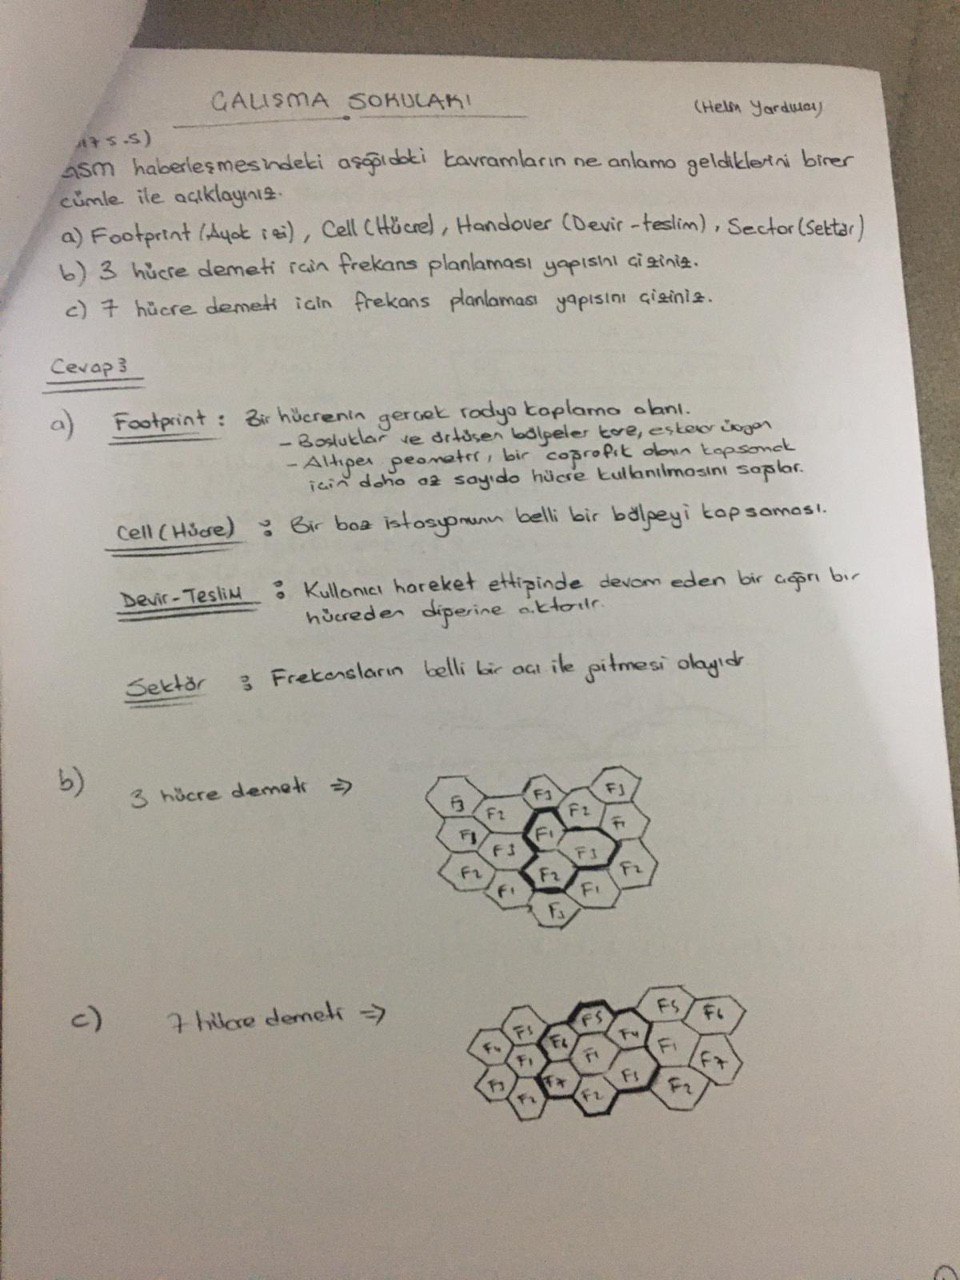 ÇALIŞMA SORULARI
(Helin Yardımcı)
GSM haberleşmesindeki aşağıdaki kavramların ne anlama geldiklerini birer
cümle ile açıklayınız.
a) Footprint (Ayak izi), Cell (Hücre), Handover (Devir-teslim), Sector (Sektör)
b) 3 hücre demeti için frekans planlaması yapısını çiziniz.
c) 7 hücre demeti için frekans planlaması yapısını çiziniz.
Cevap 3
a) Footprint : Bir hücrenin gerçek radyo kaplama alanı.
- Boşluklar ve örtüşen bölgeler kare, eşkenar üçgen
- Altıgen geometri, bir coğrafik alanın kapsamak
için daha az sayıda hücre kullanılmasını sağlar.
Cell (Hücre) : Bir baz istasyonunun belli bir bölgeyi kapsaması.
Devir-Teslim : Kullanıcı hareket ettiğinde devam eden bir çağrı bir
hücreden diğerine aktarılır.
Sektör : Frekansların belli bir açı ile gitmesi olayıdır
b) 3 hücre demeti ⇒
F3 F2 F3 F2 F3
F1 F3 F1 F3 F1
F2 F1 F2 F1 F2
F3
c) 7 hücre demeti ⇒
F5 F5 F4 F5 F6
F4 F1 F6 F1 F1 F7
F3 F2 F7 F2 F3 F2